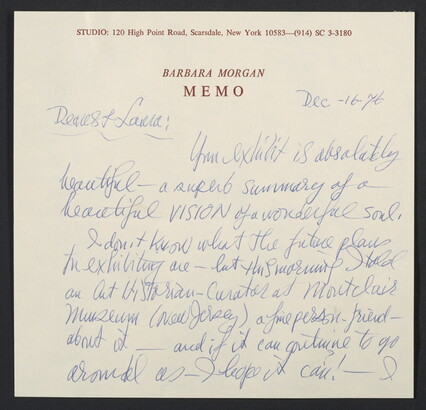 STUDIO: 120 High Point Road, Scarsdale, New York 10583—(914) SC 3-3180
BARBARA MORGAN
MEMO
Dec -16-76
Dearest Laura:
Your exhibit is absolutely
beautiful — a superb summary of a
beautiful VISION of a wonderful soul.
I don't know what the future plans
for exhibiting are — but this morning I told
an Art Historian-Curator at Montclair
Museum (New Jersey) a fine person-friend—
about it — and if it can continue to go
around as — I hope it can! — I